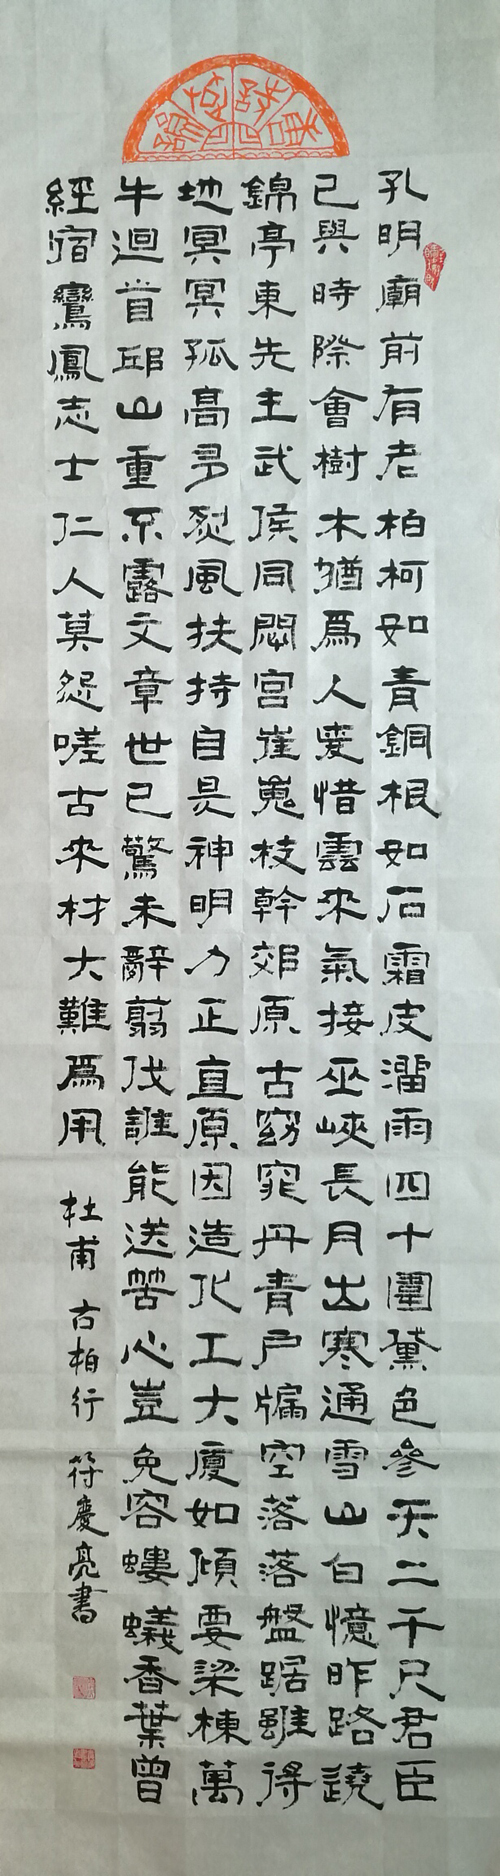 孔明廟前有老柏柯如青銅根如石霜皮溜雨四十圍黛色參天二千尺君臣
已與時際會樹木猶爲人愛惜雲來氣接巫峽長月出寒通雪山白憶昨路遶
錦亭東先主武侯同閟宮崔嵬枝幹郊原古窈窕丹青戶牖空落落盤踞雖得
地冥冥孤高多烈風扶持自是神明力正直原因造化工大廈如傾要梁棟萬
牛迴首邱山重不露文章世已驚未辭翦伐誰能送苦心豈免容螻蟻香葉曾
經宿鸞鳳志士仁人莫怨嗟古來材大難爲用
杜甫 古柏行 符慶亮書